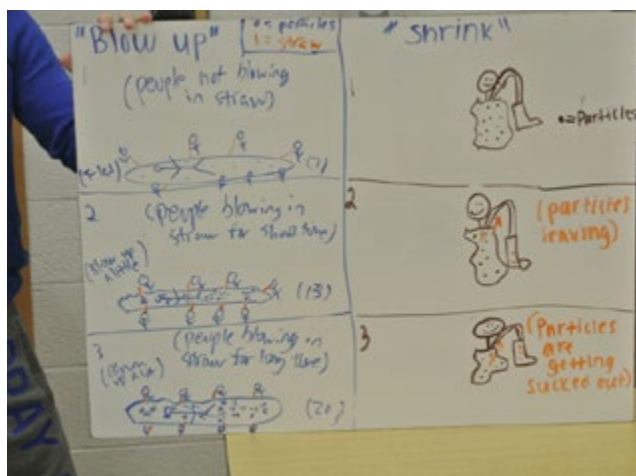 "Blow up"
• = particles
| = straw
1
(people not blowing
in straw)
2
(people blowing in
straw for short time)
(Blow up
a little)
(13)
3
(people blowing in
straw for long time)
(20)
"shrink"
1
• = Particles
2
(particles
leaving)
3
(Particles
are
getting
sucked out)